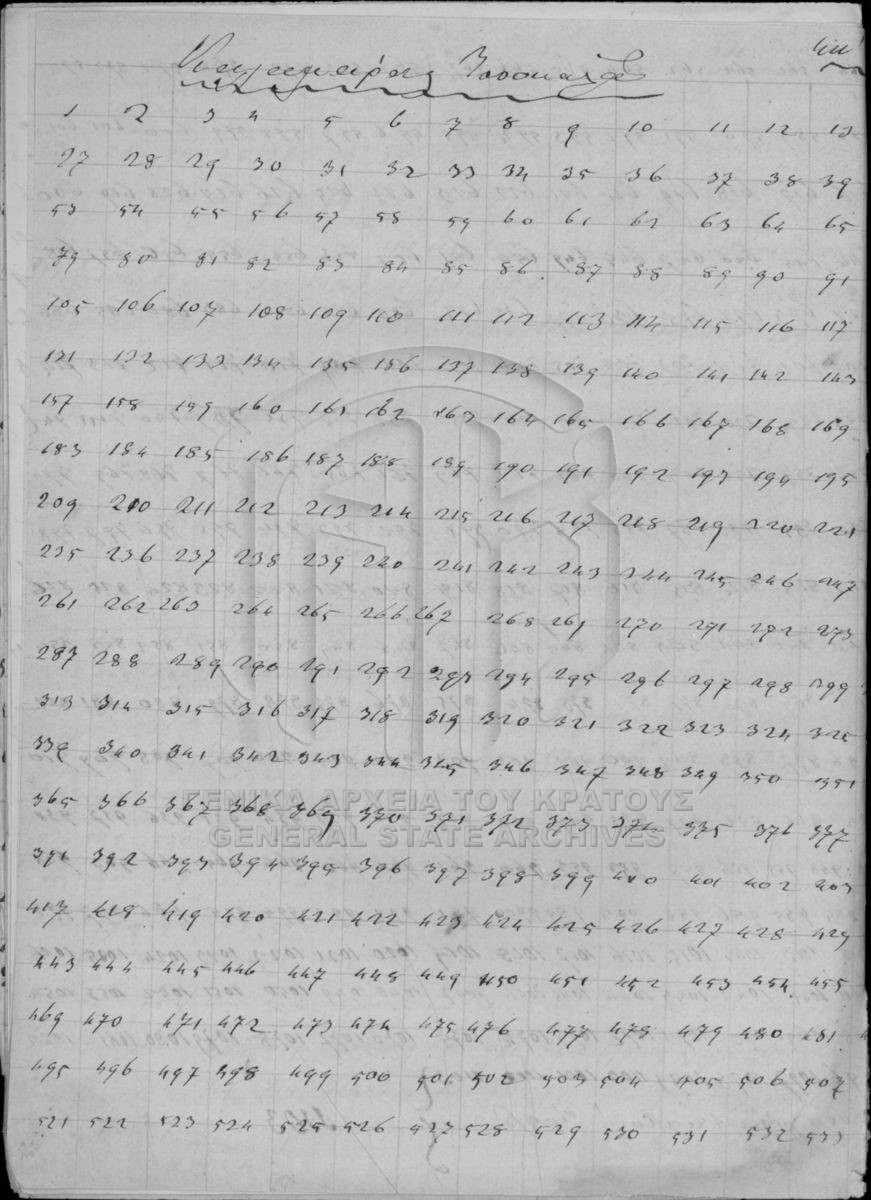 1 2 3 4 5 6 7 8 9 10 11 12 13
27 28 29 30 31 32 33 34 35 36 37 38 39
53 54 55 56 57 58 59 60 61 62 63 64 65
79 80 81 82 83 84 85 86 87 88 89 90 91
105 106 107 108 109 110 111 112 113 114 115 116 117
131 132 133 134 135 136 137 138 139 140 141 142 143
157 158 159 160 161 162 163 164 165 166 167 168 169
183 184 185 186 187 188 189 190 191 192 193 194 195
209 210 211 212 213 214 215 216 217 218 219 220 221
235 236 237 238 239 240 241 242 243 244 245 246 247
261 262 263 264 265 266 267 268 269 270 271 272 273
287 288 289 290 291 292 293 294 295 296 297 298 299
313 314 315 316 317 318 319 320 321 322 323 324 325
339 340 341 342 343 344 345 346 347 348 349 350 351
365 366 367 368 369 370 371 372 373 374 375 376 377
ΓΕΝΙΚΑ ΑΡΧΕΙΑ ΤΟΥ ΚΡΑΤΟΥΣ
GENERAL STATE ARCHIVES
391 392 393 394 395 396 397 398 399 400 401 402 403
417 418 419 420 421 422 423 424 425 426 427 428 429
443 444 445 446 447 448 449 450 451 452 453 454 455
469 470 471 472 473 474 475 476 477 478 479 480 481
495 496 497 498 499 500 501 502 503 504 505 506 507
521 522 523 524 525 526 527 528 529 530 531 532 533